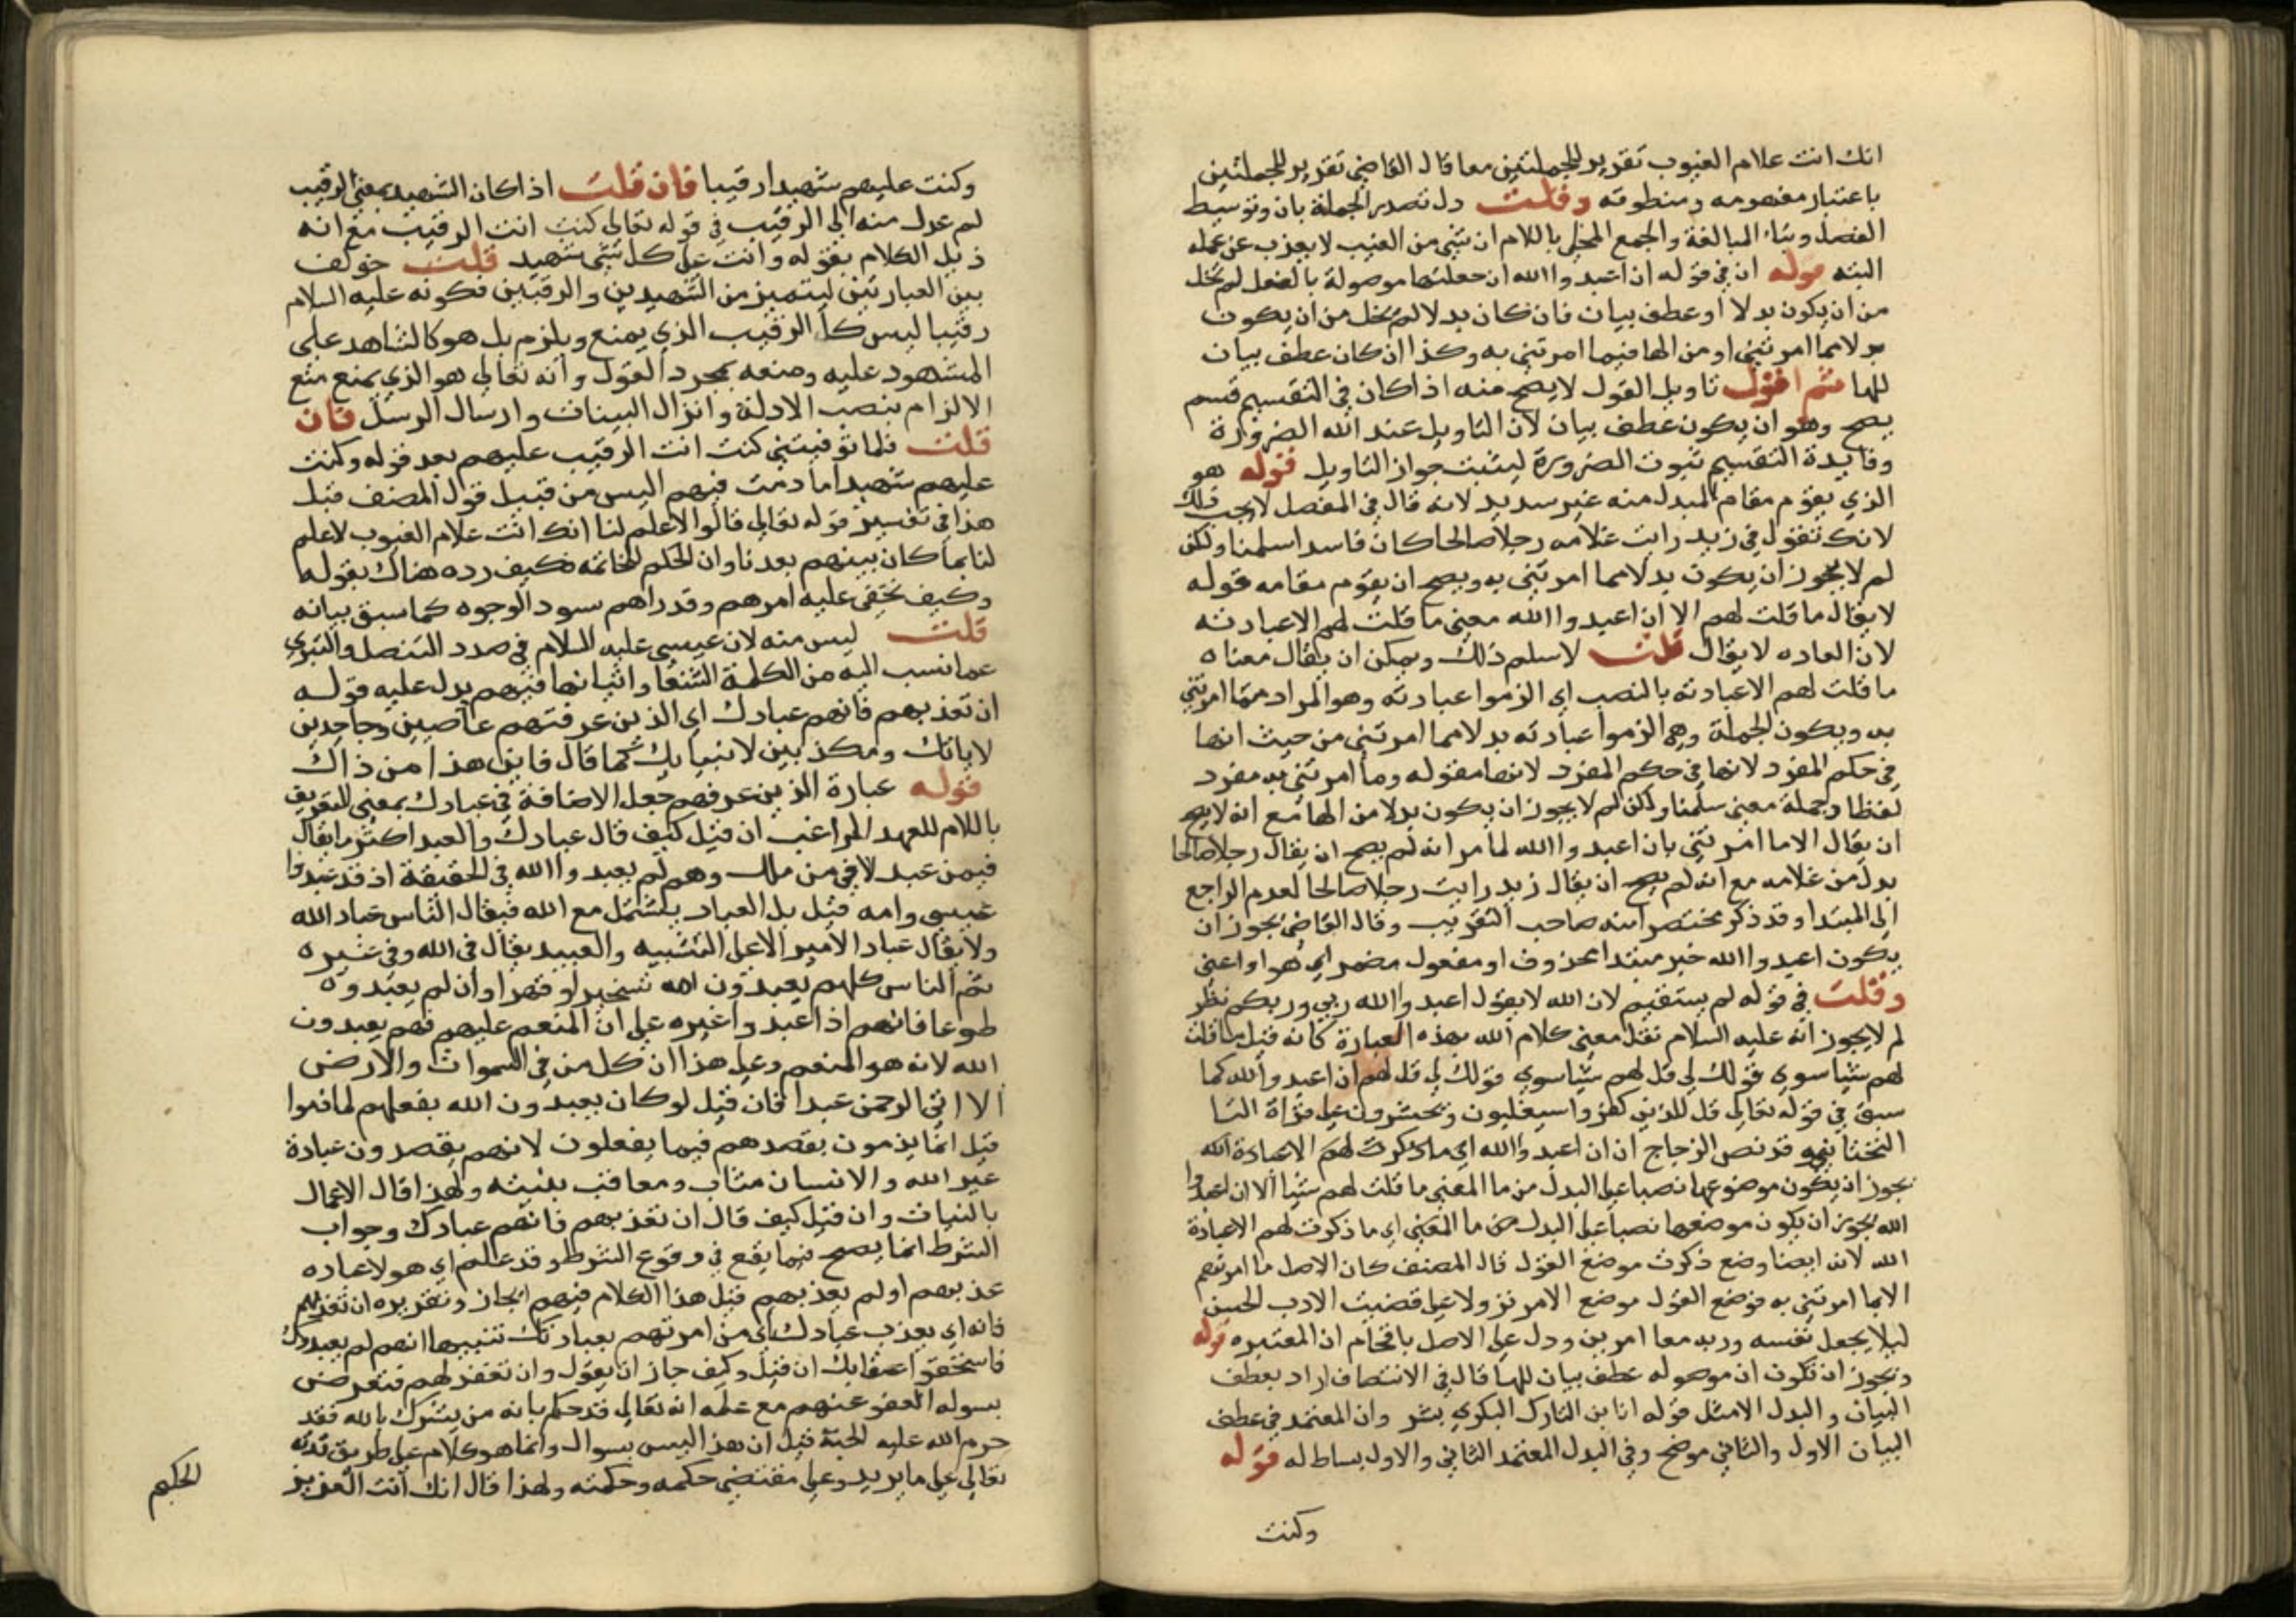 انك انت علام الغيوب تقرير للجملتين معا قال القاضي تقرير للجملتين
باعتبار مفهومه ومنطوقه وقلت دل تصدير الجملة بان وتوسيط
الفصل وبناء المبالغة والجمع المحلى باللام ان شئ من الغيب لا يعزب عن علمه
البته قوله ان في قوله ان اعبدوا الله ان جعلتها موصولة بالفعل لم تخل
من ان يكون بدلا او عطف بيان فان كان بدلا لم يخل من ان يكون
بدلا مما امرتني او من الها فيما امرتني به وكذا ان كان عطف بيان
للها ثم اقول تاويل القول لا يصح منه اذا كان في التقسيم قسم
يصح وهو ان يكون عطف بيان لان التاويل عند الله الضرورة
وفايدة التقسيم ثبوت الضرورة ليثبت جواز التاويل قوله هو
الذي يقوم مقام المبدل منه غير سديد لانه قال في المفصل لا يجب ذلك
لانك تقول في زيد رايت غلامه رجلا صالحا كان فاسدا سلمنا ولكن
لم لا يجوز ان يكون بدلا مما امرتني به ويصح ان يقوم مقامه قوله
لا يقال ما قلت لهم الا ان اعبدوا الله معنى ما قلت لهم الا عبادته
لان العاده لا يقال قلت لا سلم ذلك ويمكن ان يقال معناه
ما قلت لهم الا عبادته بالنصب اي الزموا عبادته وهو المراد مما امرتني
به ويكون الجملة وهي الزموا عبادته بدلا مما امرتني من حيث انها
في حكم المفرد لانها في حكم المفرد لانها مقوله وما امرتني به مفرد
لفظا وجملة معنى سلمنا ولكن لم لا يجوز ان يكون بدلا من الها مع انه لا يصح
ان يقال الا ما امرتني بان اعبدوا الله لما مر انه لم يصح ان يقال رجلا صالحا
بدل من غلامه مع انه لم يصح ان يقال زيد رايت رجلا صالحا لعدم الراجع
الى المبتدا وقد ذكر مختصر منه صاحب التقريب وقال القاضي يجوز ان
يكون اعبدوا الله خبر مبتدا محذوف او مفعول مضمر اي هو او اعني
وقلت في قوله لم يستقيم لان الله لا يقول اعبدوا الله ربي وربكم نظر
لم لا يجوز انه عليه السلام نقل معنى كلام الله بهذه العبارة كانه قيل ما قلت
لهم شيا سوى قولك لي قل لهم شيا سوى قولك لي قل لهم ان اعبدوا الله كما
سبق في قوله تعالى قل للذين كفروا سيغلبون ويحشرون على قراة اليا
التحتانيه وقد نص الزجاج ان ان اعبدوا الله اي ما ذكرت لهم الا عبادة الله
يجوز ان يكون موضوعها نصبا على البدل من ما المعنى ما قلت لهم شيا الا ان اعبدوا
الله يجوز ان يكون موضعها نصبا على البدل من ما المعنى اي ما ذكرت لهم الا عبادة
الله لانه ايضا وضع ذكرت موضع القول قال المصنف كان الاصل ما امرتهم
الا بما امرتني به فوضع القول موضع الامر نزولا على قضية الادب الحسن
ليلا يجعل نفسه وربه معا امرين ودل على الاصل باقحام ان المفسره قوله
ويجوز ان تكون ان موصوله عطف بيان للها قال في الانتصاف اراد بعطف
البيان والبدل الامثل قوله انا بن التارك البكري بشر وان المعتمد في عطف
البيان الاول والثاني موضح وفي البدل المعتمد الثاني والاول بساط له قوله
وكنت
وكنت عليهم شهيدا رقيبا فان قلت اذا كان الشهيد بمعنى الرقيب
لم عدل منه الى الرقيب في قوله تعالى كنت انت الرقيب مع انه
ذيل الكلام بقوله وانت على كل شئ شهيد قلت خولف
بين العبارتين ليتميز من الشهيدين والرقيبين فكونه عليه السلام
رقيبا ليس كالرقيب الذي يمنع ويلزم بل هو كالشاهد على
المشهود عليه ومنعه بمجرد القول وانه تعالى هو الذي يمنع منع
الالزام بنصب الادلة وانزال البينات وارسال الرسل فان
قلت فلما توفيتني كنت انت الرقيب عليهم بعد قوله وكنت
عليهم شهيدا ما دمت فيهم اليس من قبيل قول المصنف قبل
هذا في تفسير قوله تعالى قالوا لا علم لنا انك انت علام الغيوب لا علم
لنا بما كان بينهم بعدنا وان الحكم للخاتمه فكيف رده هناك بقوله
وكيف تخفى عليه امرهم وقد راهم سود الوجوه كما سبق بيانه
قلت ليس منه لان عيسى عليه السلام في صدد التنصل والتبري
عما نسب اليه من الكلمة الشنعا واثباتها فيهم يدل عليه قوله
ان تعذبهم فانهم عبادك اي الذين عرفتهم عاصين وجاحدين
لاياتك ومكذبين لانبيايك كما قال فاين هذا من ذاك
قوله عبارة الذين عرفهم جعل الاضافة في عبادك بمعنى التعريف
باللام للعهد الراغب ان قيل كيف قال عبادك والعبد اكثر ما يقال
فيمن عبد لا في من ملك وهم لم يعبدوا الله في الحقيقة اذ قد عبدوا
عيسى وامه قيل بل العباد يستعمل مع الله فيقال الناس عباد الله
ولا يقال عباد الامير الا على التشبيه والعبيد يقال في الله وفي غيره
ثم الناس كلهم يعبدون الله تسخيرا وقهرا وان لم يعبدوه
طوعا فانهم اذا عبدوا غيره على ان المنعم عليهم فهم يعبدون
الله لانه هو المنعم وعلى هذا ان كل من في السموات والارض
الا اتي الرحمن عبدا فان قيل لو كان يعبدون الله بفعلهم لما ذموا
قيل انما يذمون بقصدهم فيما يفعلون لانهم يقصدون عبادة
غير الله والانسان مثاب ومعاقب بنيته ولهذا قال الاعمال
بالنيات وان قيل كيف قال ان تعذبهم فانهم عبادك وجواب
الشرط انما يصح فيما يقع في وقوع الشرط وقد علم اي هولا عباده
عذبهم او لم يعذبهم قيل هذا الكلام فيهم ايجاز وتقريره ان تعذبهم
فانه اي يعذب عبادك اي من امرتهم بعبادتك تنبيها انهم لم يعبدوك
فاستحقوا عقابك ان قيل وكيف جاز ان يقول وان تغفر لهم فتعرض
بسواله العفو عنهم مع علمه انه تعالى قد حكم بانه من يشرك بالله فقد
حرم الله عليه الجنة قيل ان هذا ليس بسوال وانما هو كلام على طريق قدرته
تعالى على ما يريد وعلى مقتضى حكمه وحكمته ولهذا قال انك انت العزيز
الحكيم